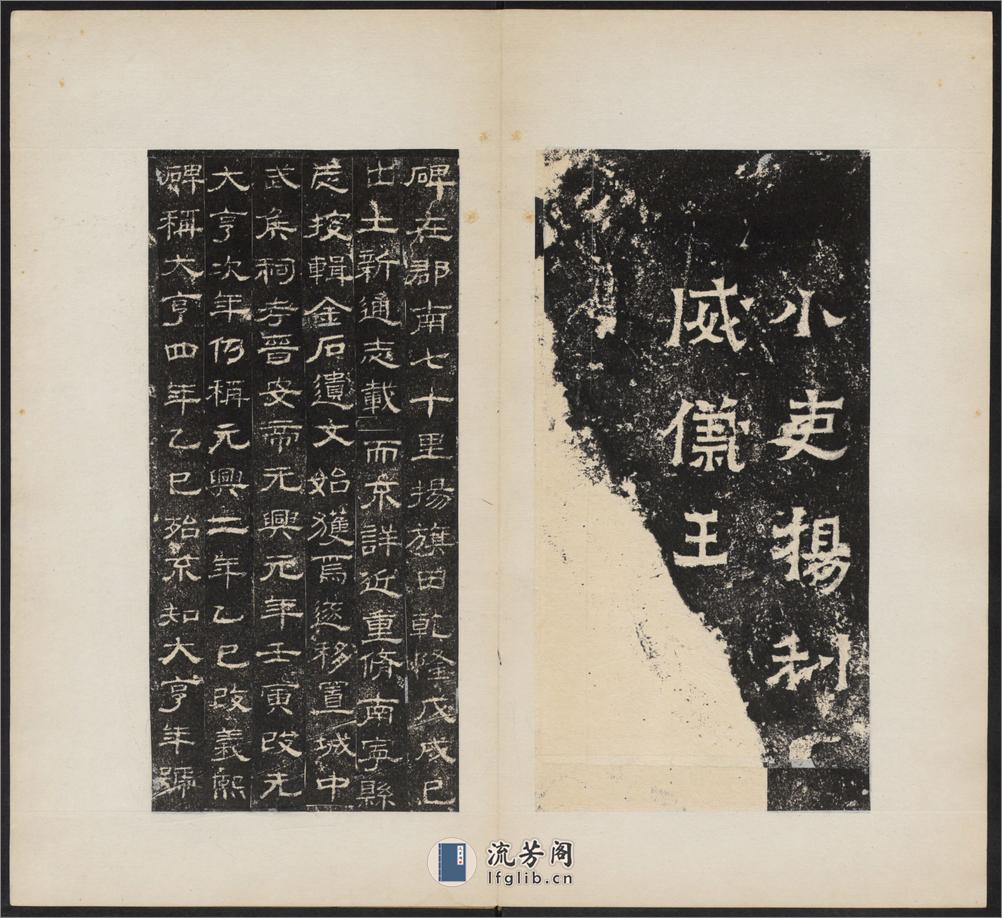 小吏楊利
威儀王
碑在郡南七十里揚旗田乾隆戊戌已
出土新通志載而未詳近重修南寧縣
志披輯金石遺文始獲焉遂移置城中
武矦祠考晉安帝元興元年壬寅改元
大亨次年仍稱元興二年乙巳改義熙
碑稱大亨四年乙巳殆未知大亨年號
流芳阁
lfglib.cn